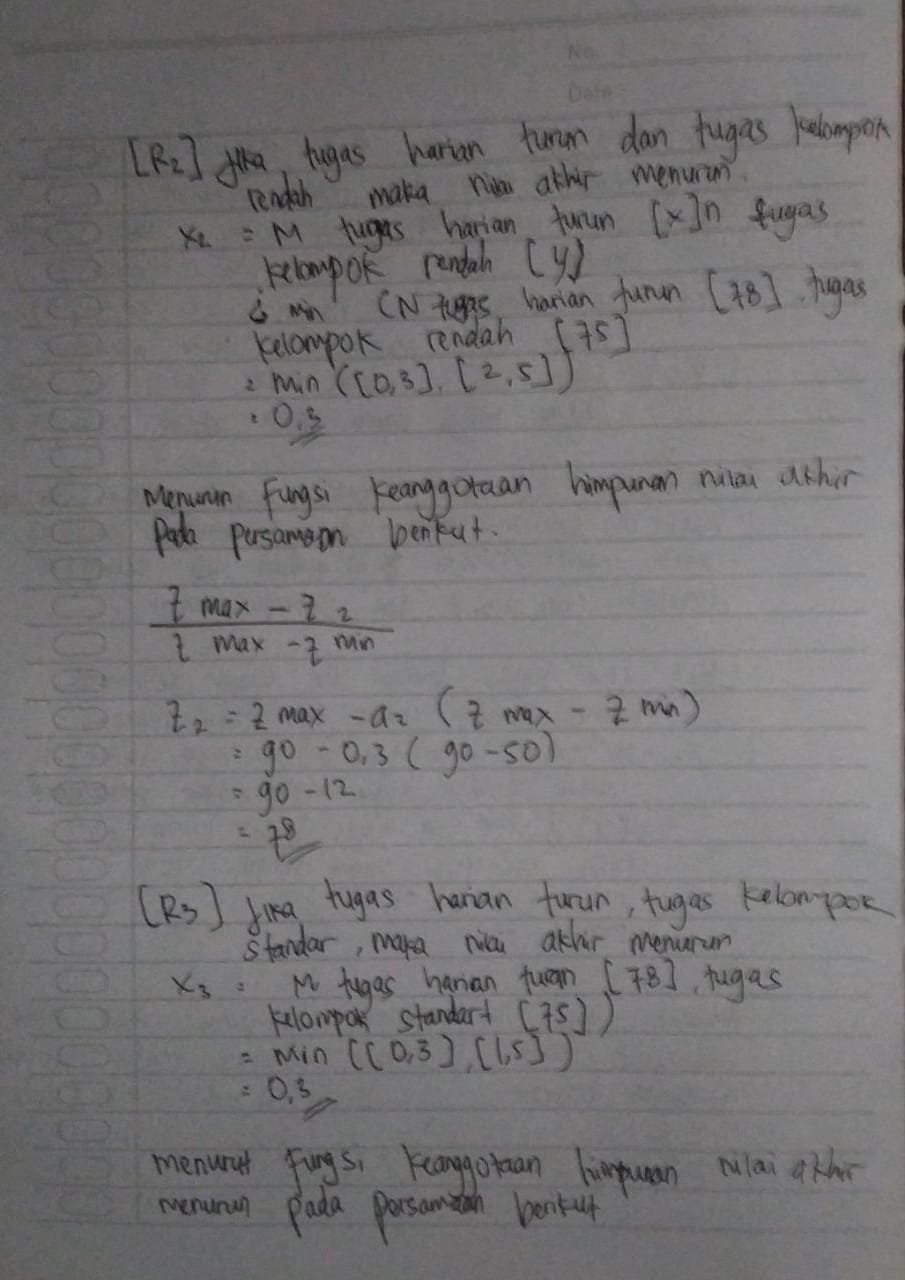 No
Date
[R2] Jika tugas harian turun dan tugas kelompok
rendah maka nilai akhir menurun.
X2 = M tugas harian turun [x]n tugas
kelompok rendah [y]
min (N tugas harian turun [78], tugas
kelompok rendah [75]
= min ([0,3], [2,5])
= 0,3
Menurun Fungsi keanggotaan himpunan nilai akhir
Pada persamaan berikut.
Z max - Z 2
Z max - Z min
Z2 = Z max - a2 (Z max - Z min)
= 90 - 0,3 (90 - 50)
= 90 - 12
= 78
[R3] Jika tugas harian turun, tugas kelompok
standar, maka nilai akhir menurun
X3 = M tugas harian turan [78], tugas
kelompok standart [75])
= min ([0,3], [1,5])
= 0,3
menurut fungsi keanggotaan himpunan nilai akhir
menurun pada persamaan berikut